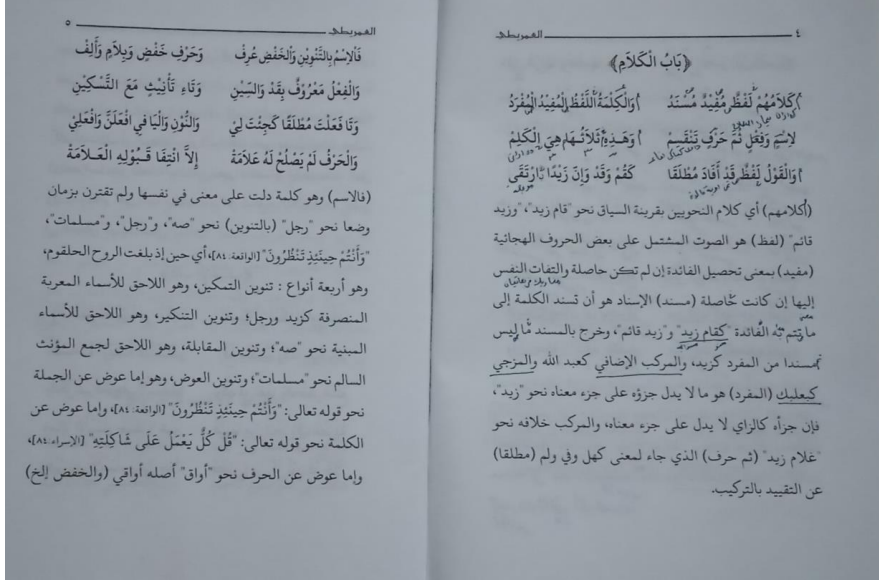 ٤ العمريطي
﴿بَابُ الْكَلَامِ﴾
كَلَامُهُمْ لَفْظٌ مُفِيْدٌ مُسْنَدُ وَالْكِلْمَةُ اللَّفْظُ الْمُفِيْدُ الْمُفْرَدُ
لِاسْمٍ وَفِعْلٍ ثُمَّ حَرْفٍ تَنْقَسِمْ وَهَذِهِ ثَلَاثُهَا هِيَ الْكَلِمْ
وَالْقَوْلُ لَفْظٌ قَدْ أَفَادَ مُطْلَقَا كَقُمْ وَقَدْ وَإِنَّ زَيْدًا ارْتَقَى
(كلامهم) أي كلام النحويين بقرينة السياق نحو "قام زيد"، "وزيد
قائم" (لفظ) هو الصوت المشتمل على بعض الحروف الهجائية
(مفيد) بمعنى تحصيل الفائدة إن لم تكن حاصلة والتفات النفس
إليها إن كانت حاصلة (مسند) الإسناد هو أن تسند الكلمة إلى
ما تتم به الفائدة "كقام زيد" و"زيد قائم"، وخرج بالمسند ما ليس
مسندا من المفرد كزيد، والمركب الإضافي كعبد الله والمزجي
كبعلبك (المفرد) هو ما لا يدل جزؤه على جزء معناه نحو "زيد"،
فإن جزأه كالزاي لا يدل على جزء معناه، والمركب خلافه نحو
"غلام زيد" (ثم حرف) الذي جاء لمعنى كهل وفي ولم (مطلقا)
عن التقييد بالتركيب.
العمريطي ٥
فَالْاِسْمُ بِالتَّنْوِيْنِ وَالْخَفْضِ عُرِفْ وَحَرْفِ خَفْضٍ وَبِلَامٍ وَأَلِفْ
وَالْفِعْلُ مَعْرُوْفٌ بِقَدْ وَالسِّيْنِ وَتَاءِ تَأْنِيْثٍ مَعَ التَّسْكِيْنِ
وَتَا فَعَلْتَ مُطْلَقًا كَجِئْتَ لِيْ وَالنُّوْنِ وَالْيَا فِي افْعَلَنَّ وَافْعَلِيْ
وَالْحَرْفُ لَمْ يَصْلُحْ لَهُ عَلَامَةْ إِلَّا انْتِفَا قَبُوْلِهِ الْعَلَامَةْ
(فالاسم) وهو كلمة دلت على معنى في نفسها ولم تقترن بزمان
وضعا نحو "رجل" (بالتنوين) نحو "صه"، و"رجل"، و"مسلمات"،
"وَأَنْتُمْ حِينَئِذٍ تَنْظُرُونَ" [الواقعة: ٨٤]، أي حين إذ بلغت الروح الحلقوم،
وهو أربعة أنواع : تنوين التمكين، وهو اللاحق للأسماء المعربة
المنصرفة كزيد ورجل؛ وتنوين التنكير، وهو اللاحق للأسماء
المبنية نحو "صه"؛ وتنوين المقابلة، وهو اللاحق لجمع المؤنث
السالم نحو "مسلمات"؛ وتنوين العوض، وهو إما عوض عن الجملة
نحو قوله تعالى: "وَأَنْتُمْ حِينَئِذٍ تَنْظُرُونَ" [الواقعة: ٨٤]، وإما عوض عن
الكلمة نحو قوله تعالى: "قُلْ كُلٌّ يَعْمَلُ عَلَى شَاكِلَتِهِ" [الإسراء: ٨٤]،
وإما عوض عن الحرف نحو "أواق" أصله أواقي (والخفض إلخ)